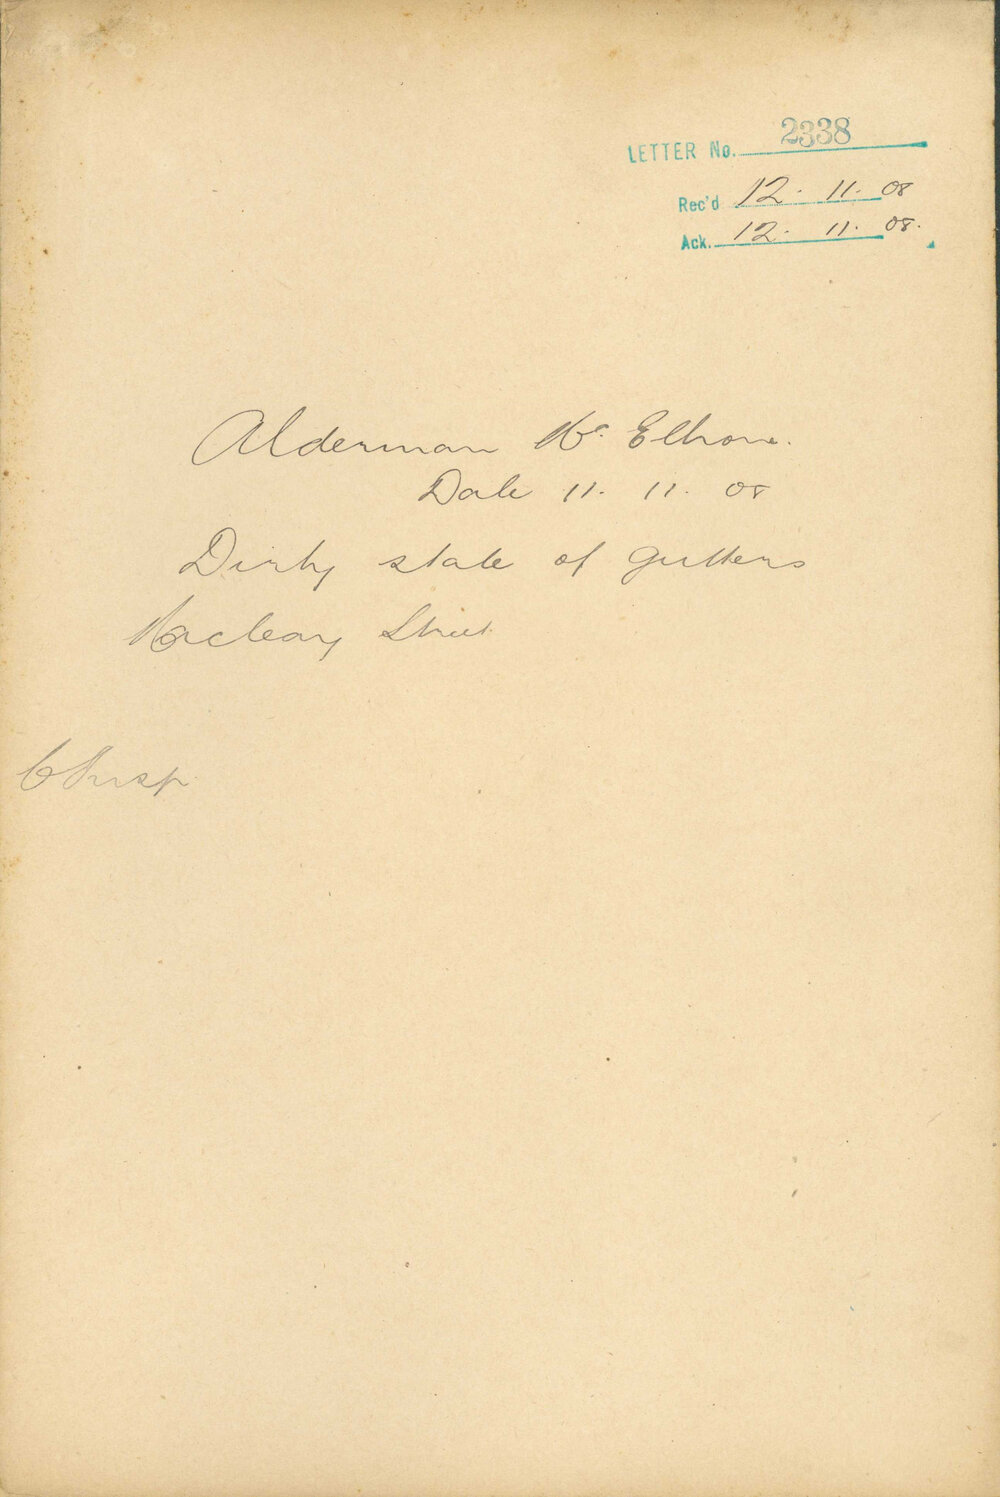 LETTER No. 2338
Rec'd 12. 11. 08
Ack. 12. 11. 08.
Alderman Mc Elhone.
Date 11. 11. 08
Dirty state of gutters
Macleay Street
C Insp